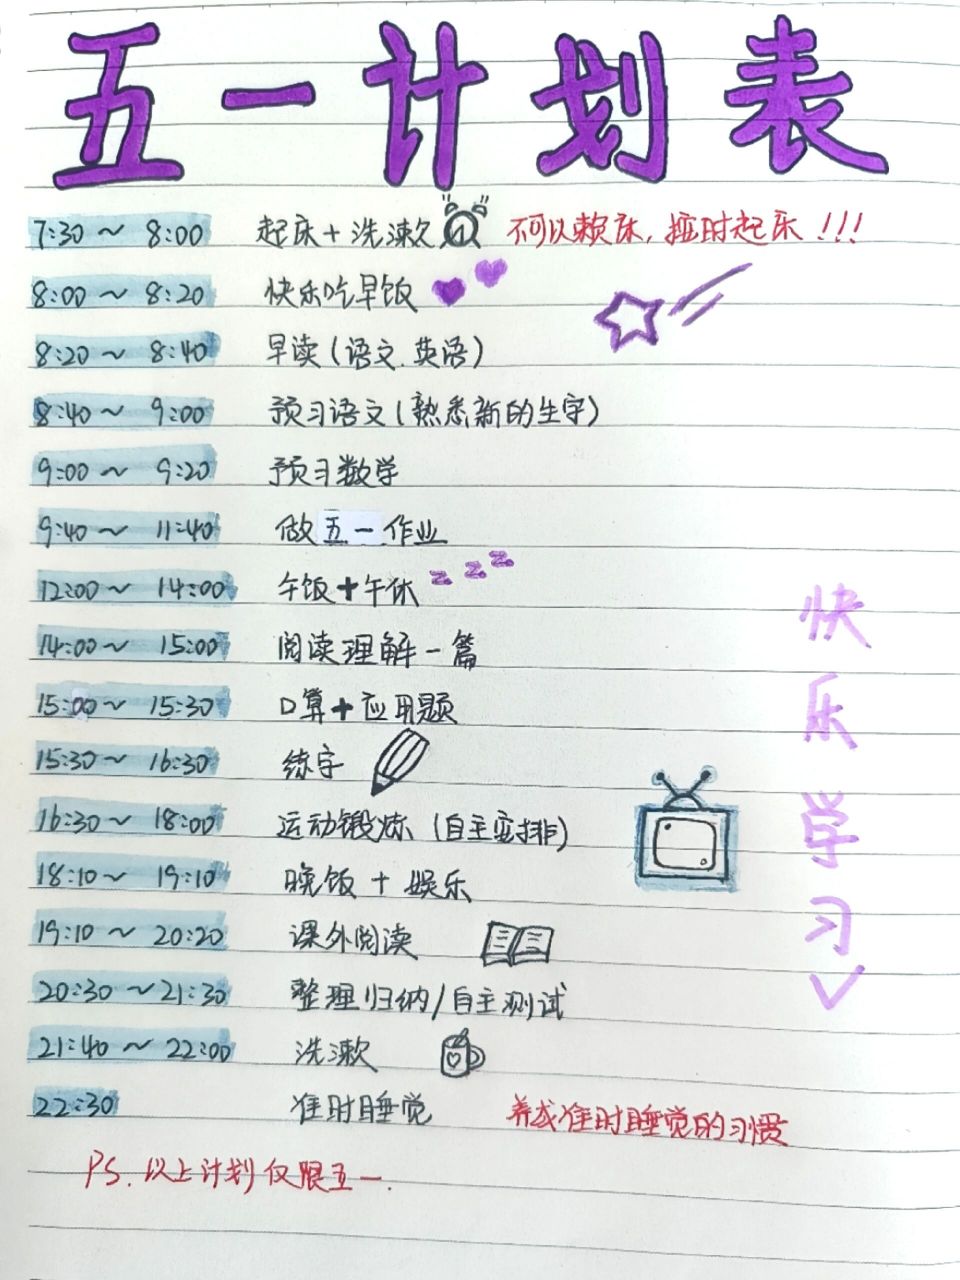 五一计划表
7:30～8:00 起床+洗漱 不可以赖床,按时起床!!!
8:00～8:20 快乐吃早饭
8:20～8:40 早读(语文.英语)
8:40～9:00 预习语文(熟悉新的生字)
9:00～9:20 预习数学
9:40～11:40 做五一作业
12:00～14:00 午饭+午休 z z z
14:00～15:00 阅读理解一篇
15:00～15:30 口算+应用题
15:30～16:30 练字
16:30～18:00 运动锻炼(自主安排)
18:10～19:10 晚饭+娱乐
19:10～20:20 课外阅读
20:30～21:30 整理归纳/自主测试
21:40～22:00 洗漱
22:30 准时睡觉 养成准时睡觉的习惯
PS.以上计划仅限五一.
快乐学习